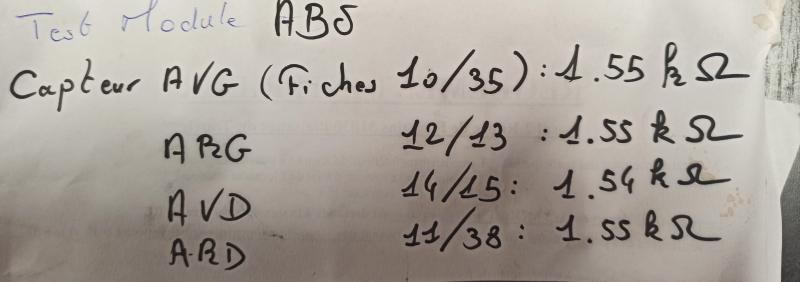 Test Module ABS
Capteur AVG (Fiches 10/35) : 1.55 kΩ
ARG 12/13 : 1.55 kΩ
AVD 14/15 : 1.54 kΩ
ARD 11/38 : 1.55 kΩ